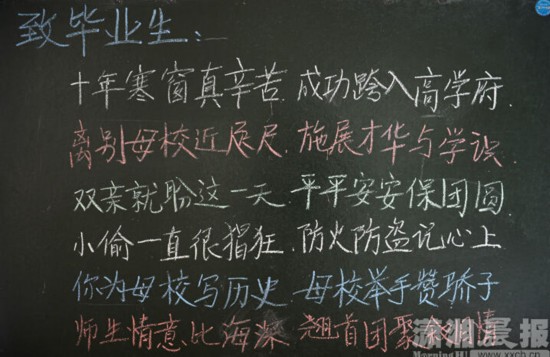 致毕业生:
十年寒窗真辛苦.成功跨入高学府.
离别母校近展尺.施展才华与学识.
双亲就盼这一天.平平安安保团圆
小偷一直很猖狂.防火防盗记心上
你为母校写历史.母校举手赞骄子
师生情意比海深.翘首团聚叙旧情
潇湘晨报
www.xxcb.cn